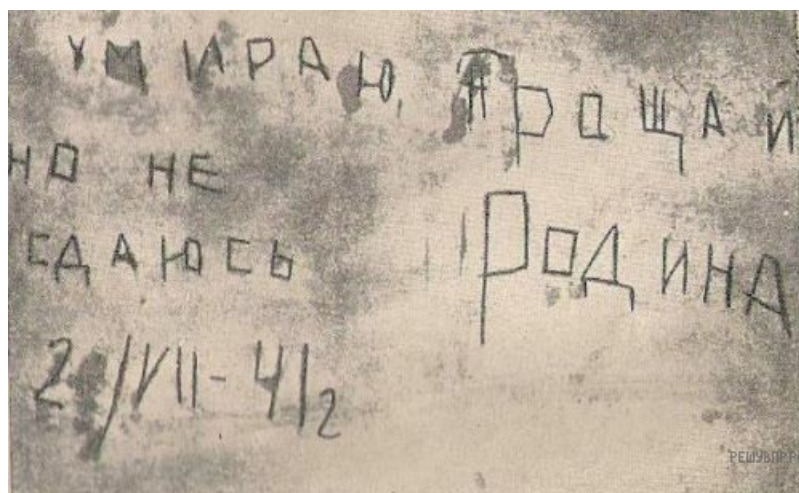 УМИРАЮ,
НО НЕ
СДАЮСЬ
ПРОЩАЙ
РОДИНА
20/VII-41г
РЕШУВПР.Р